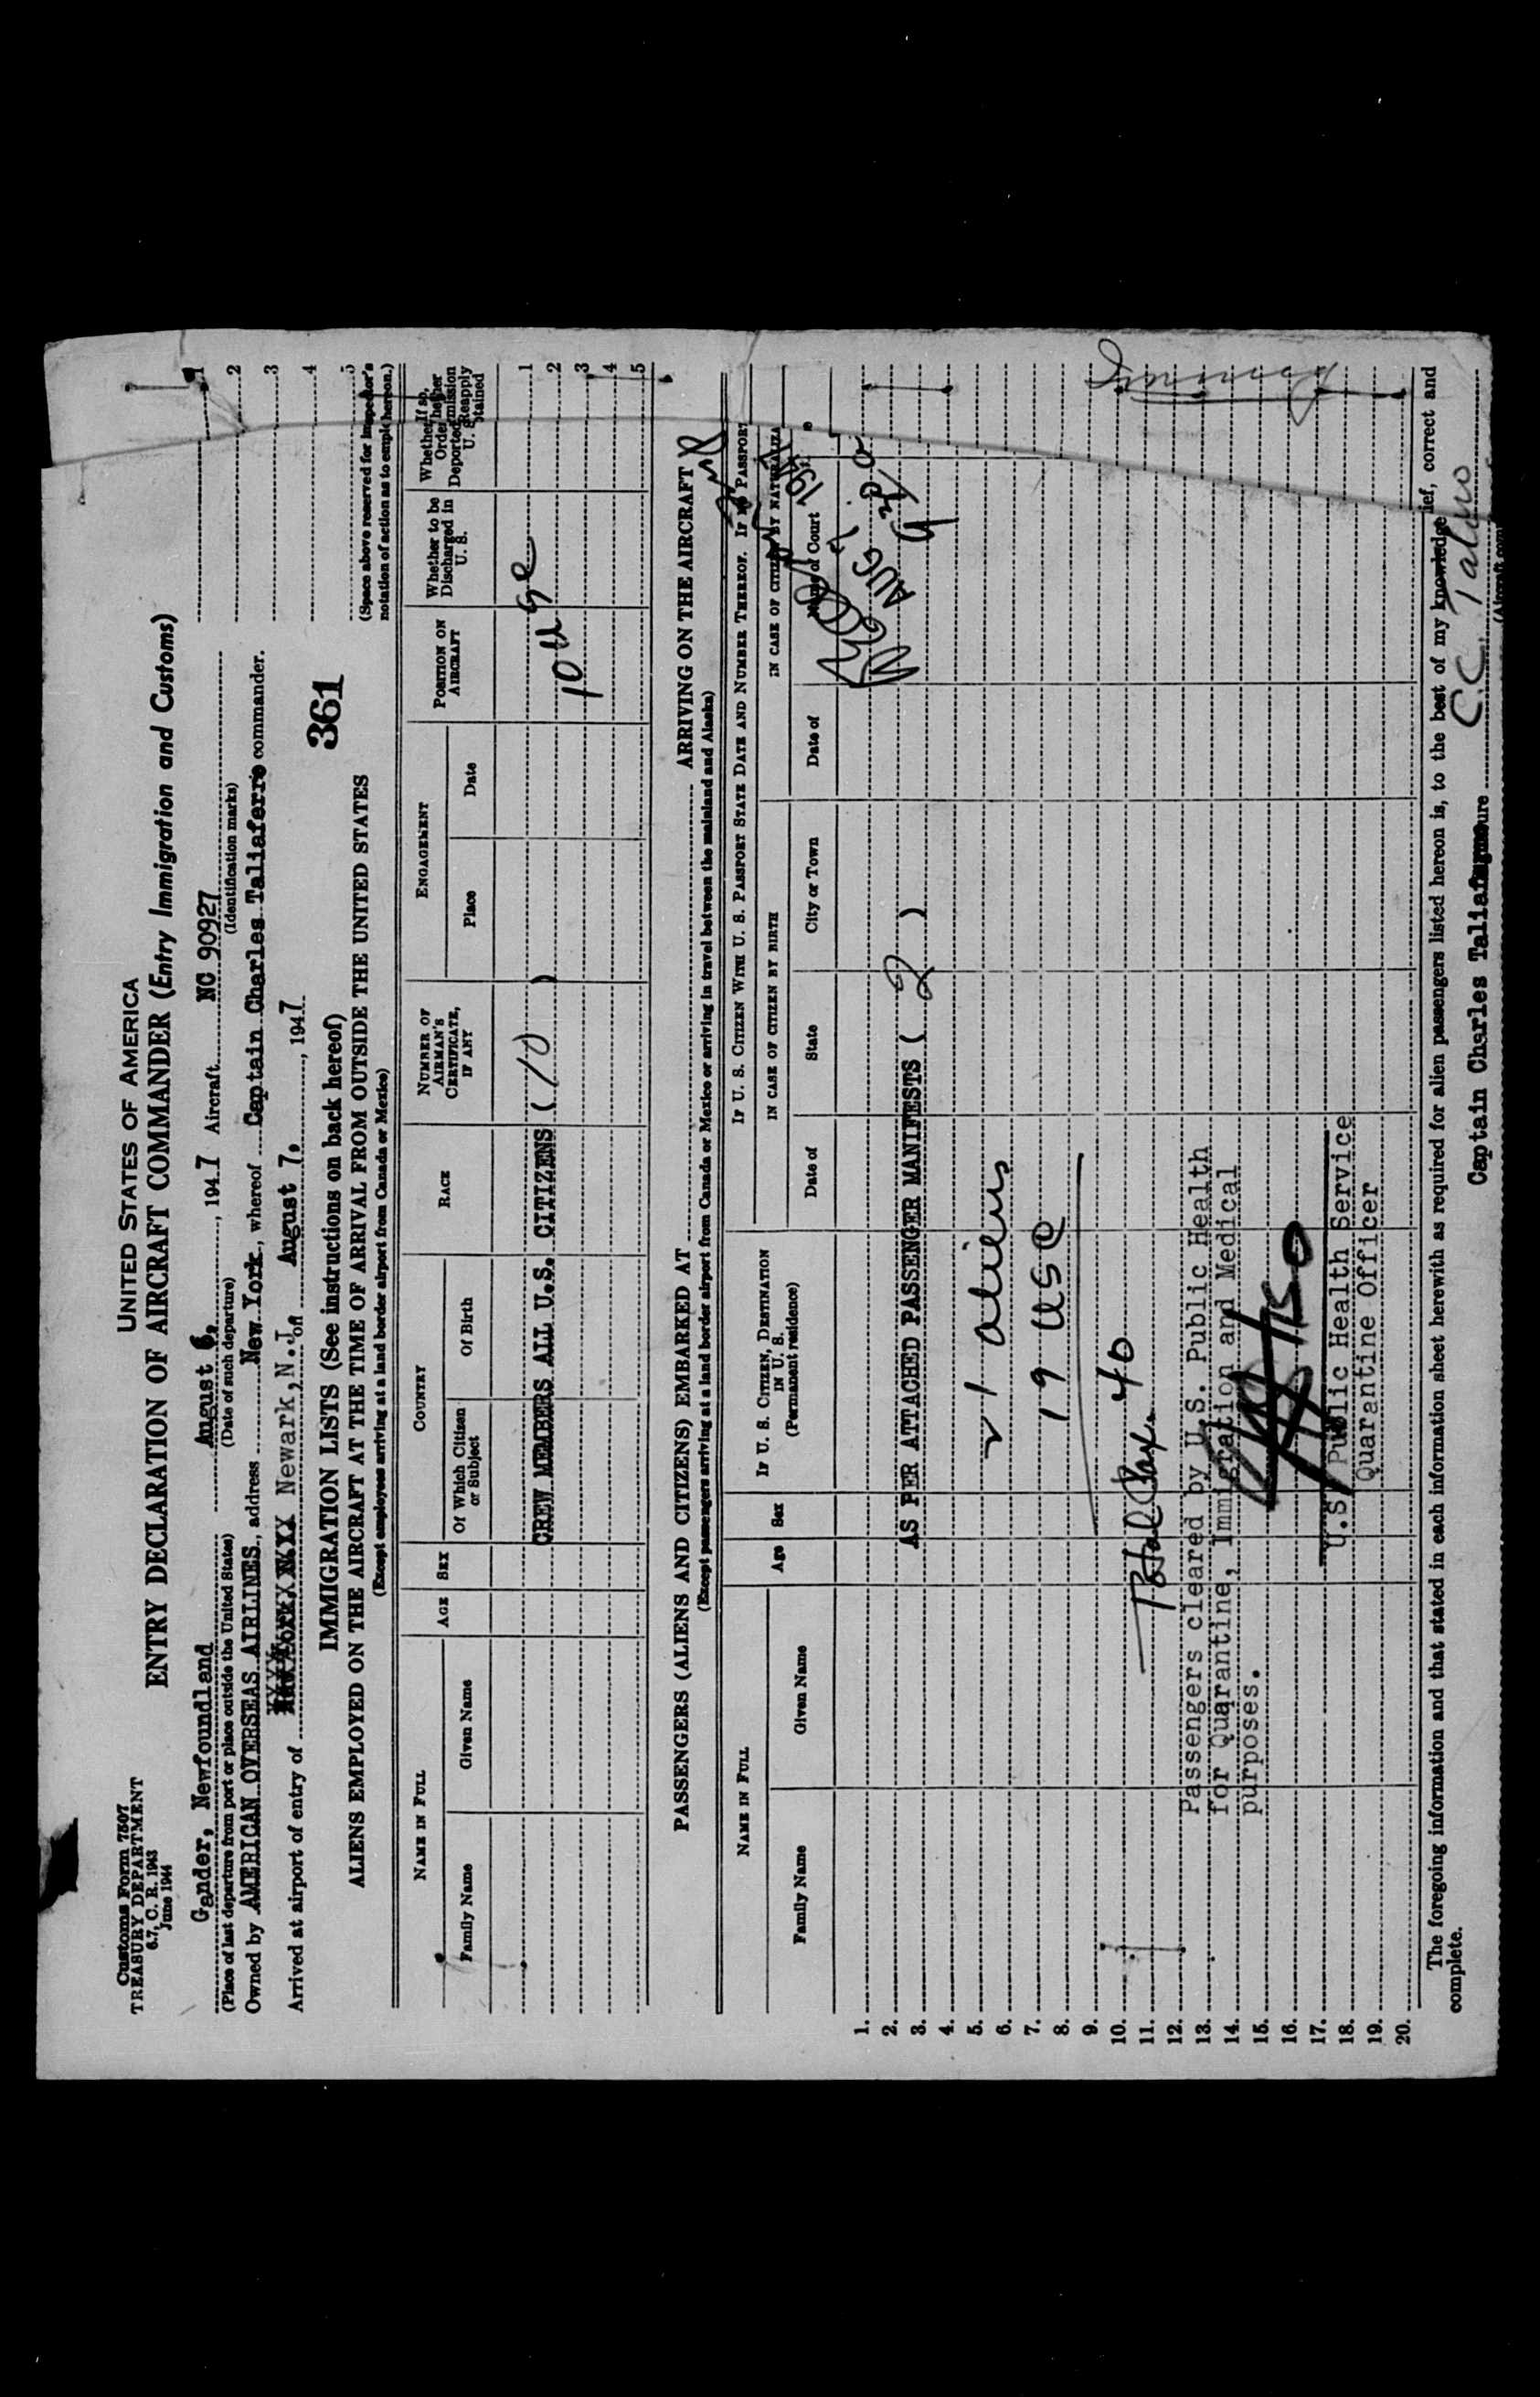 Customs Form 7507
TREASURY DEPARTMENT
6.7, C. R. 1943
June 1944
UNITED STATES OF AMERICA
ENTRY DECLARATION OF AIRCRAFT COMMANDER (Entry Immigration and Customs)
Gander, Newfoundland August 6, , 1947 Aircraft NC 90927
(Place of last departure from port or place outside the United States) (Date of such departure) (Identification marks)
Owned by AMERICAN OVERSEAS AIRLINES, address New York, whereof Captain Charles Taliaferro commander.
Arrived at airport of entry of Newark, N.J. on August 7, , 1947
1
2
3
4
5
(Space above reserved for inspector's
notation of action as to employees hereon.)
361
IMMIGRATION LISTS (See instructions on back hereof)
ALIENS EMPLOYED ON THE AIRCRAFT AT THE TIME OF ARRIVAL FROM OUTSIDE THE UNITED STATES
(Except employees arriving at a land border airport from Canada or Mexico)
NAME IN FULL
Family Name
Given Name
AGE
SEX
COUNTRY
Of Which Citizen
or Subject
Of Birth
RACE
NUMBER OF
AIRMAN'S
CERTIFICATE,
IF ANY
ENGAGEMENT
Place
Date
POSITION ON
AIRCRAFT
Whether to be
Discharged in
U. S.
CREW MEMBERS ALL U.S. CITIZENS ( 10 )
1
2
3
4
5
PASSENGERS (ALIENS AND CITIZENS) EMBARKED AT ARRIVING ON THE AIRCRAFT
(Except passengers arriving at a land border airport from Canada or Mexico or arriving in travel between the mainland and Alaska)
NAME IN FULL
Family Name
Given Name
Age
Sex
IF U. S. CITIZEN, DESTINATION
IN U. S.
(Permanent residence)
IF U. S. CITIZEN WITH U. S. PASSPORT STATE DATE AND NUMBER THEREOF. IF NO PASSPORT
IN CASE OF CITIZEN BY BIRTH
IN CASE OF CITIZEN BY NATURALIZA
Date of
State
City or Town
Date of
Name of Court
1.
2.
3. AS PER ATTACHED PASSENGER MANIFESTS ( 2 )
4.
5.
6. 21 aliens
7.
8. 19 USC
9.
10. 40
11. Total Pax.
12.
13. Passengers cleared by U.S. Public Health
14. for Quarantine, Immigration and Medical
15. purposes.
16.
17.
18. U.S. Public Health Service
19. Quarantine Officer
20.
The foregoing information and that stated in each information sheet herewith as required for alien passengers listed hereon is, to the best of my knowledge ief, correct and
complete.
Captain Charles
C.C.